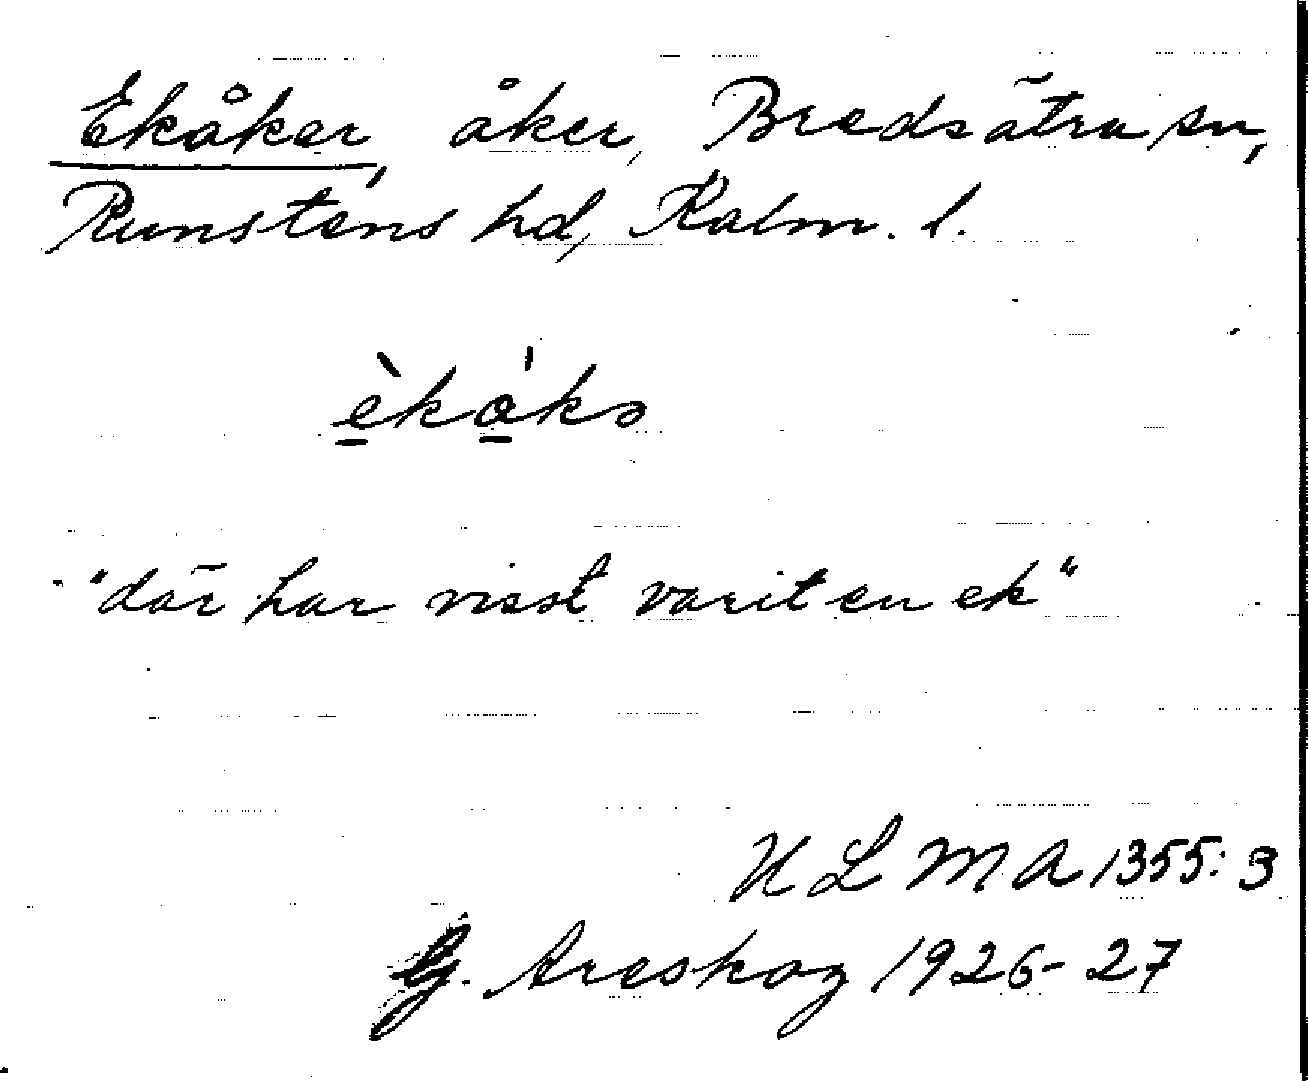 Ekåker, åker, Bredsätra sn,
Runstens hd, Kalm. l.
è̠kǻ̠kə
"där har visst varit en ek"
ULMA 1355:3
G. Areskog 1926-27